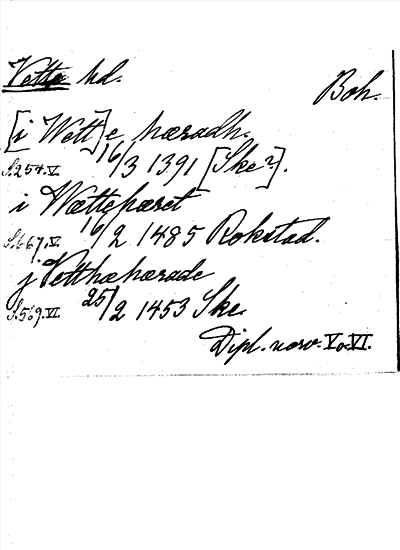 Vette hd. Boh.
[i Wett]e hæradh.
S.254.V. 16/3 1391 [Ske?].
i Wættehæret
S.667.V. 16/2 1485 Rokstad.
j Vetthæhærade
S.569.VI. 25/2 1453 Ske.
Dipl. norv. V o. VI.